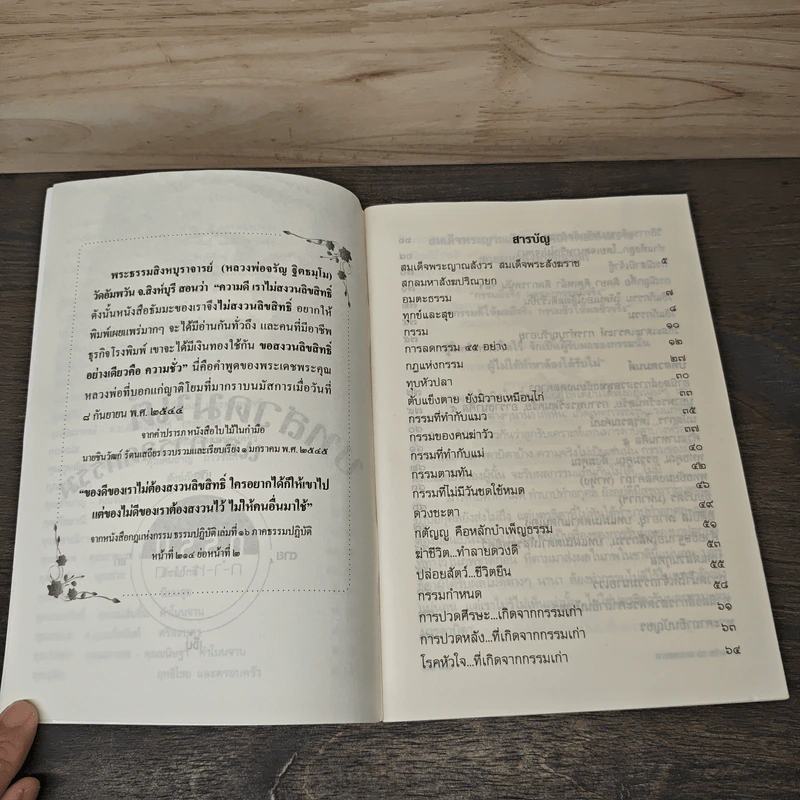 พระธรรมสิงหบุราจารย์ (หลวงพ่อจรัญ ฐิตธมฺโม)
วัดอัมพวัน จ.สิงห์บุรี สอนว่า “ความดี เราไม่สงวนลิขสิทธิ์
ดังนั้นหนังสือธรรมะของเราจึงไม่สงวนลิขสิทธิ์ อยากให้
พิมพ์เผยแพร่มากๆ จะได้มีอ่านกันทั่วถึง และคนที่มีอาชีพ
ธุรกิจโรงพิมพ์ เขาจะได้มีเงินทองใช้กัน ขอสงวนลิขสิทธิ์
อย่างเดียวคือ ความชั่ว” นี่คือคำพูดของพระเดชพระคุณ
หลวงพ่อที่บอกแก่ญาติโยมที่มากราบนมัสการเมื่อวันที่
๘ กันยายน พ.ศ. ๒๕๔๔
จากคำปรารภ หนังสือใบไม้ในกำมือ
นายชินวัฒก์ รัตนเสถียร รวบรวมและเรียบเรียง ๑ มกราคม พ.ศ. ๒๕๔๕
“ของดีของเราไม่ต้องสงวนลิขสิทธิ์ ใครอยากได้ก็ให้เขาไป
แต่ของไม่ดีของเราต้องสงวนไว้ ไม่ให้คนอื่นมาใช้”
จากหนังสือกฎแห่งกรรม ธรรมปฏิบัติ เล่มที่ ๑๖ ภาคธรรมปฏิบัติ
หน้าที่ ๒๑๔ ย่อหน้าที่ ๒
สารบัญ
สมเด็จพระญาณสังวร สมเด็จพระสังฆราช ๕
สกลมหาสังฆปริณายก
อมตะธรรม ๗
ทุกข์และสุข ๘
กรรม ๑๐
การลดกรรม ๔๕ อย่าง ๑๒
กฎแห่งกรรม ๒๗
ทุบหัวปลา ๓๐
ตับแข็งตาย ยังมิวายเหมือนไก่ ๓๓
กรรมที่ทำกับแมว ๓๕
กรรมของคนฆ่าวัว ๓๗
กรรมที่ทำกับแม่ ๔๐
กรรมตามทัน ๔๒
กรรมที่ไม่มีวันชดใช้หมด ๔๖
ดวงชะตา ๔๙
กตัญญู คือหลักบำเพ็ญธรรม ๕๑
ฆ่าชีวิต...ทำลายดวงดี ๕๓
ปล่อยสัตว์...ชีวิตยืน ๕๕
กรรมกำหนด ๕๘
การปวดศีรษะ...เกิดจากกรรมเก่า ๖๑
การปวดหลัง...ที่เกิดจากกรรมเก่า ๖๓
โรคหัวใจ...ที่เกิดจากกรรมเก่า ๖๔